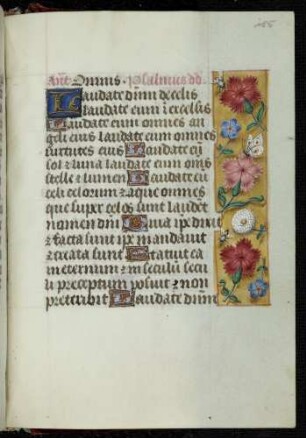 Añ Omnis. psalmus dd.
Laudate dñm de celis
laudate eum ī excelsis
Laudate eum omnes an
geli eius laudate eum omnes
virtutes eius Laudate eū
sol & luna laudate eum omīs
stelle & lumen Laudate eū
celi celorum & aque omnes
que super celos sunt laudēt
nomen dñi Quia ipe dixit
& facta sunt ipe mandauit
& creata sunt Statuit ea
in eternum & in seculū secu
li preceptum posuit & non
preteribit Laudate dñm